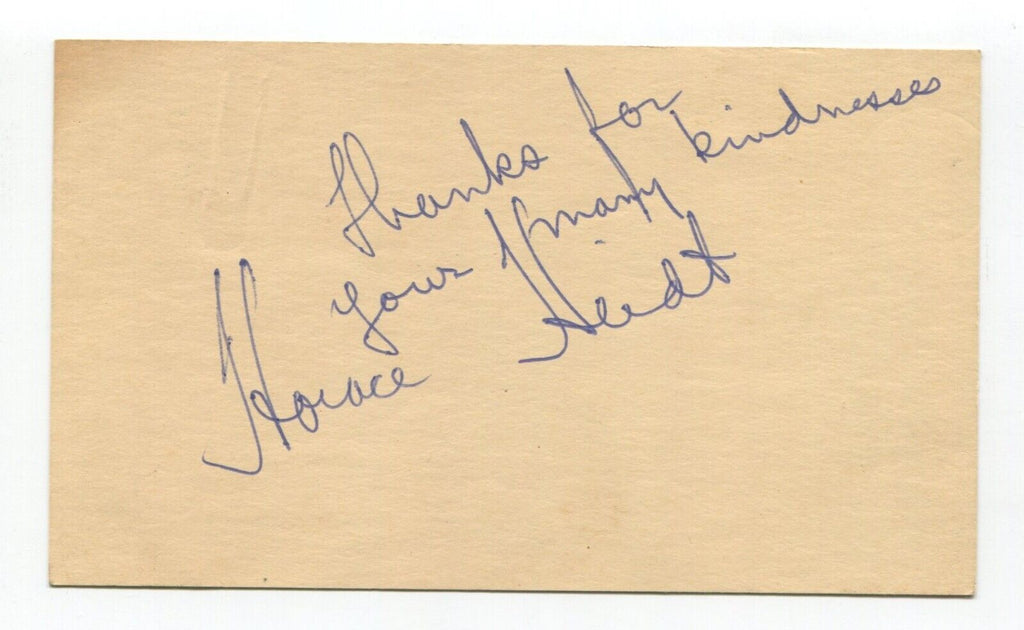 Thanks for
your many kindnesses
Horace Heidt